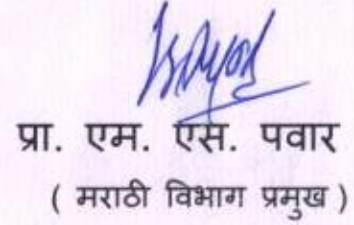 प्रा. एम. एस. पवार
( मराठी विभाग प्रमुख )